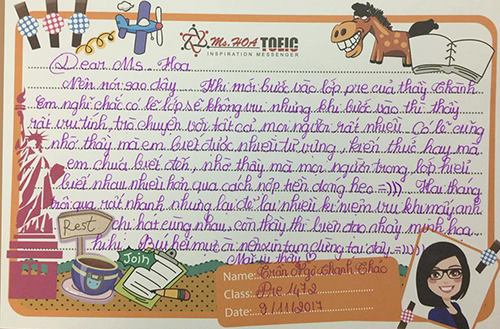 Ms. HOA TOEIC
INSPIRATION MESSENGER
Dear Ms. Hoa
Nên nói sao đây... Khi mới bước vào lớp pre của thầy Thành
Em nghĩ chắc có lẽ lớp sẽ không vui nhưng khi bước vào thì thầy
rất vui tính, trò chuyện với tất cả mọi người rất nhiều. Có lẽ cũng
nhờ thầy mà em biết được nhiều từ vựng, kiến thức hay mà
em chưa biết đến, nhờ thầy mà mọi người trong lớp
biết nhau nhiều hơn qua cách nộp tiền đóng heo =))) Hai tháng
trôi qua rất nhanh nhưng lại để lại nhiều kỉ niệm vui khi mấy anh
chị hát cùng nhau, còn thầy thì lên dao nhảy minh họa...
hihi. Bùi hết mực òi nên xin tạm dừng tại đây =))))
Rest
Join
Name: Trần Ngọc Thanh Thảo
Class: Pre 1472
Date: 9/11/2017